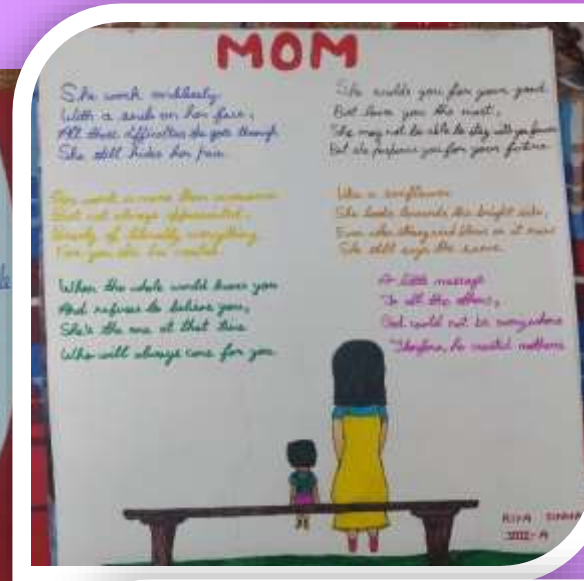 MOM
She work endlessly
With a smile on her face,
All those difficulties she goes through
She still hides her pain.
Her work is more than awesome
But not always appreciated,
literally everything
For you she has created
When the whole world leaves you
And refuses to believe you,
She's the one at that time
Who will always care for you
She scolds you for your good
But loves you the most,
She may not be able to stay with you forever
But she prepares you for your future.
Like a sunflower
She looks towards the bright side,
Even when they
She still says the same.
A little message
To all the others,
God could not be everywhere
Therefore, he created mothers
RIYA SINHA
VIII-A